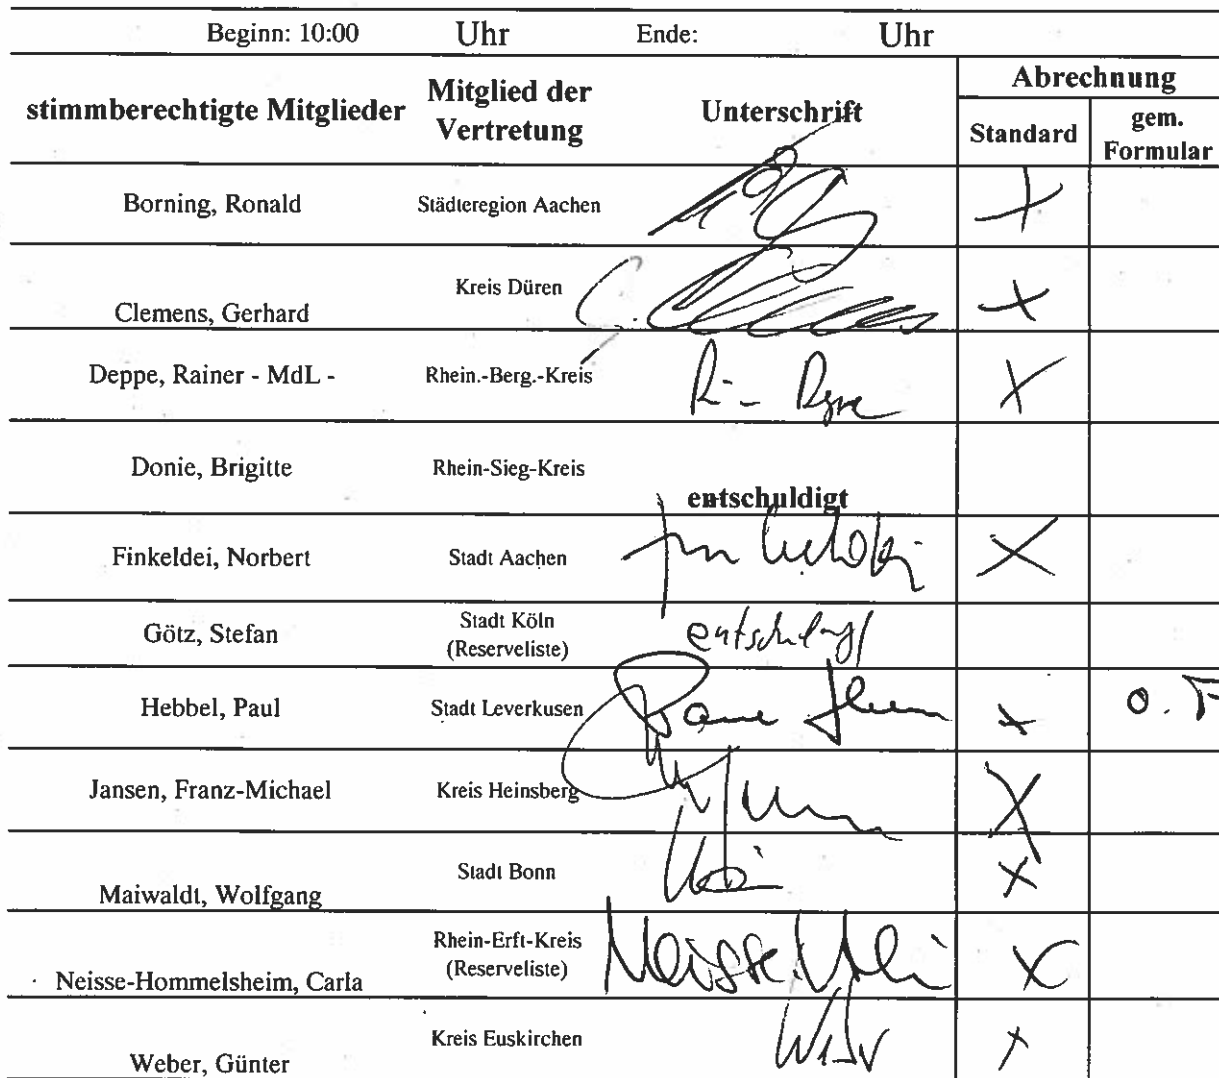 Beginn: 10:00 Uhr Ende: Uhr
stimmberechtigte Mitglieder Mitglied der Vertretung Unterschrift Abrechnung
Standard gem. Formular
Borning, Ronald Städteregion Aachen
Clemens, Gerhard Kreis Düren
Deppe, Rainer - MdL - Rhein.-Berg.-Kreis
Donie, Brigitte Rhein-Sieg-Kreis entschuldigt
Finkeldei, Norbert Stadt Aachen
Götz, Stefan Stadt Köln (Reserveliste)
Hebbel, Paul Stadt Leverkusen
Jansen, Franz-Michael Kreis Heinsberg
Maiwaldt, Wolfgang Stadt Bonn
Neisse-Hommelsheim, Carla Rhein-Erft-Kreis (Reserveliste)
Weber, Günter Kreis Euskirchen